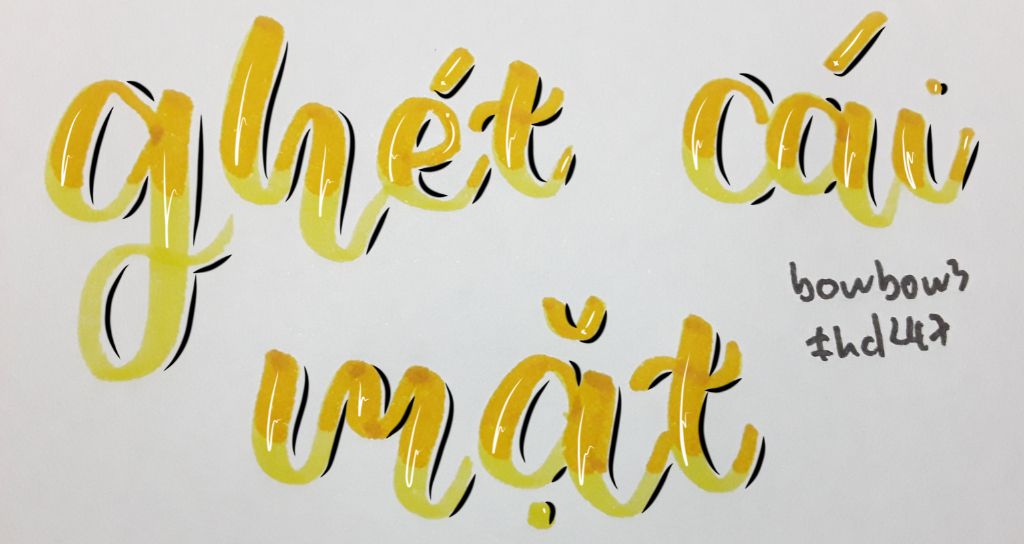 ghét cái
mặt
bowbow3